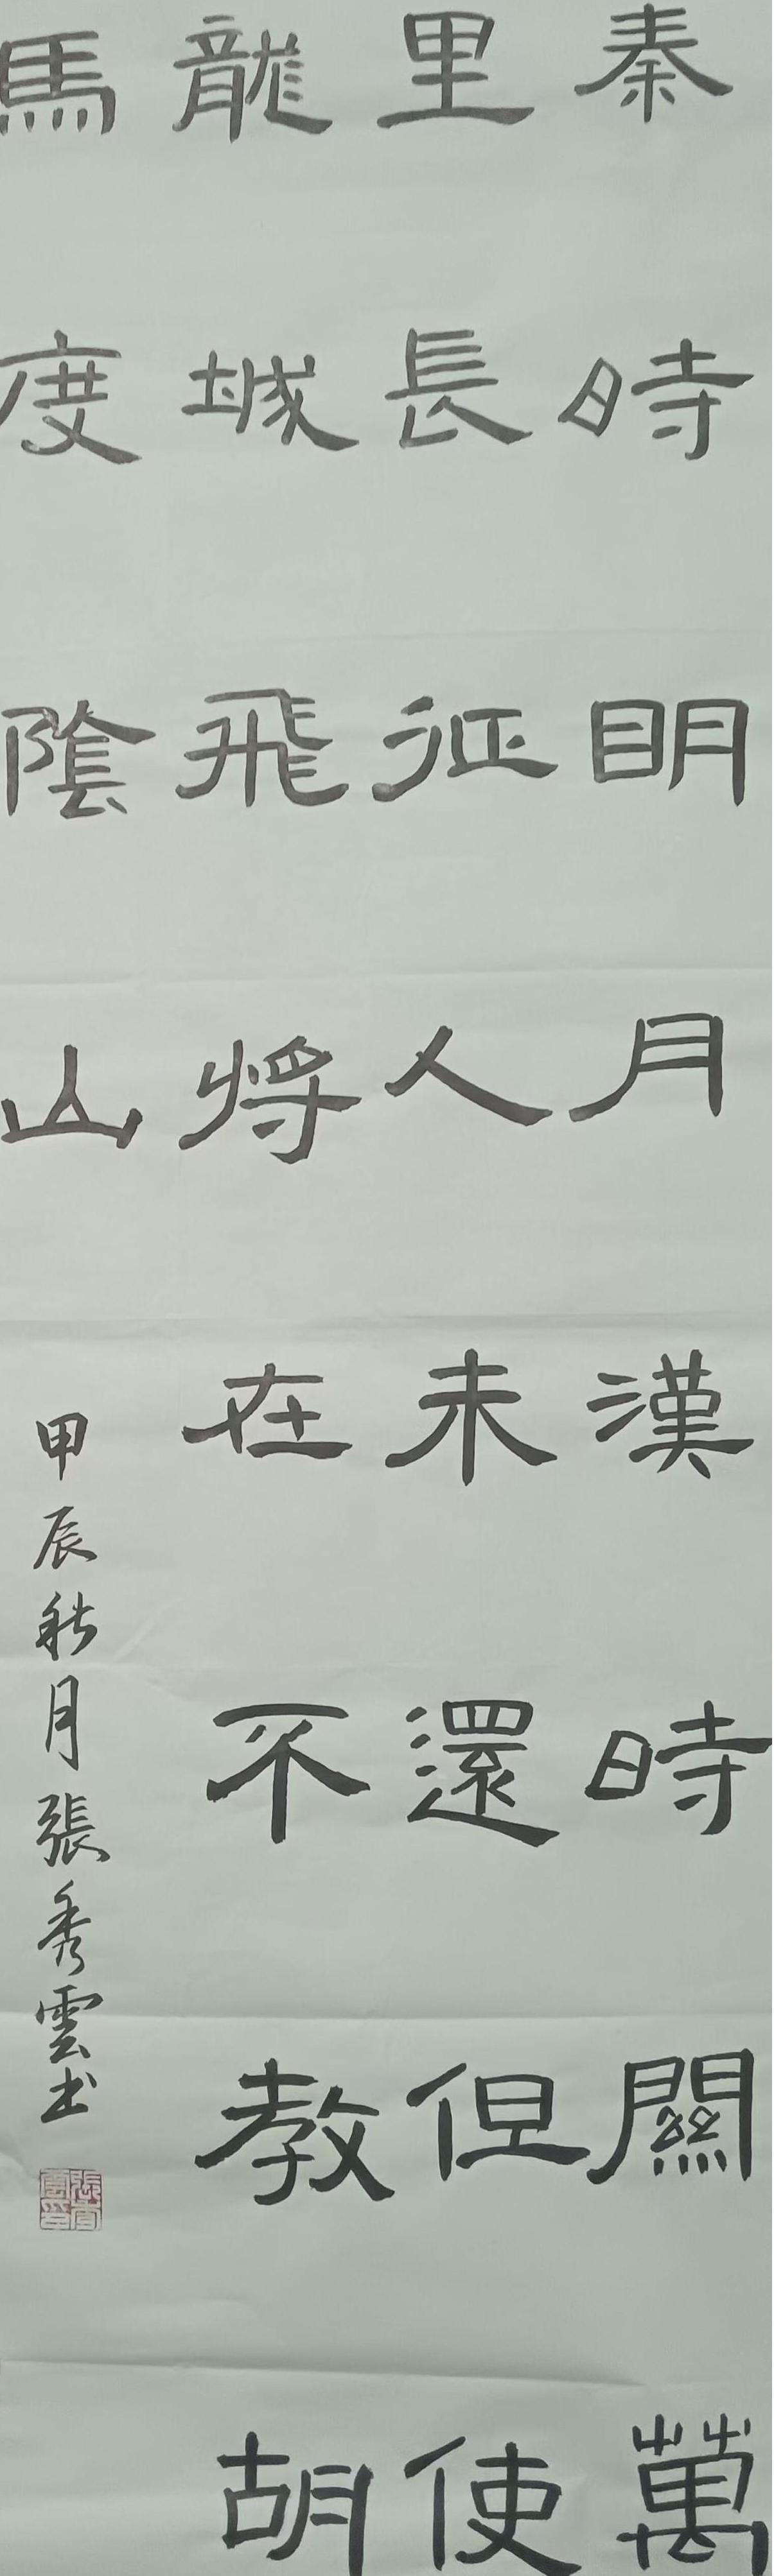 秦時明月漢時關萬
里長征人未還但使
龍城飛將在不教胡
馬度陰山
甲辰秋月張秀雲書